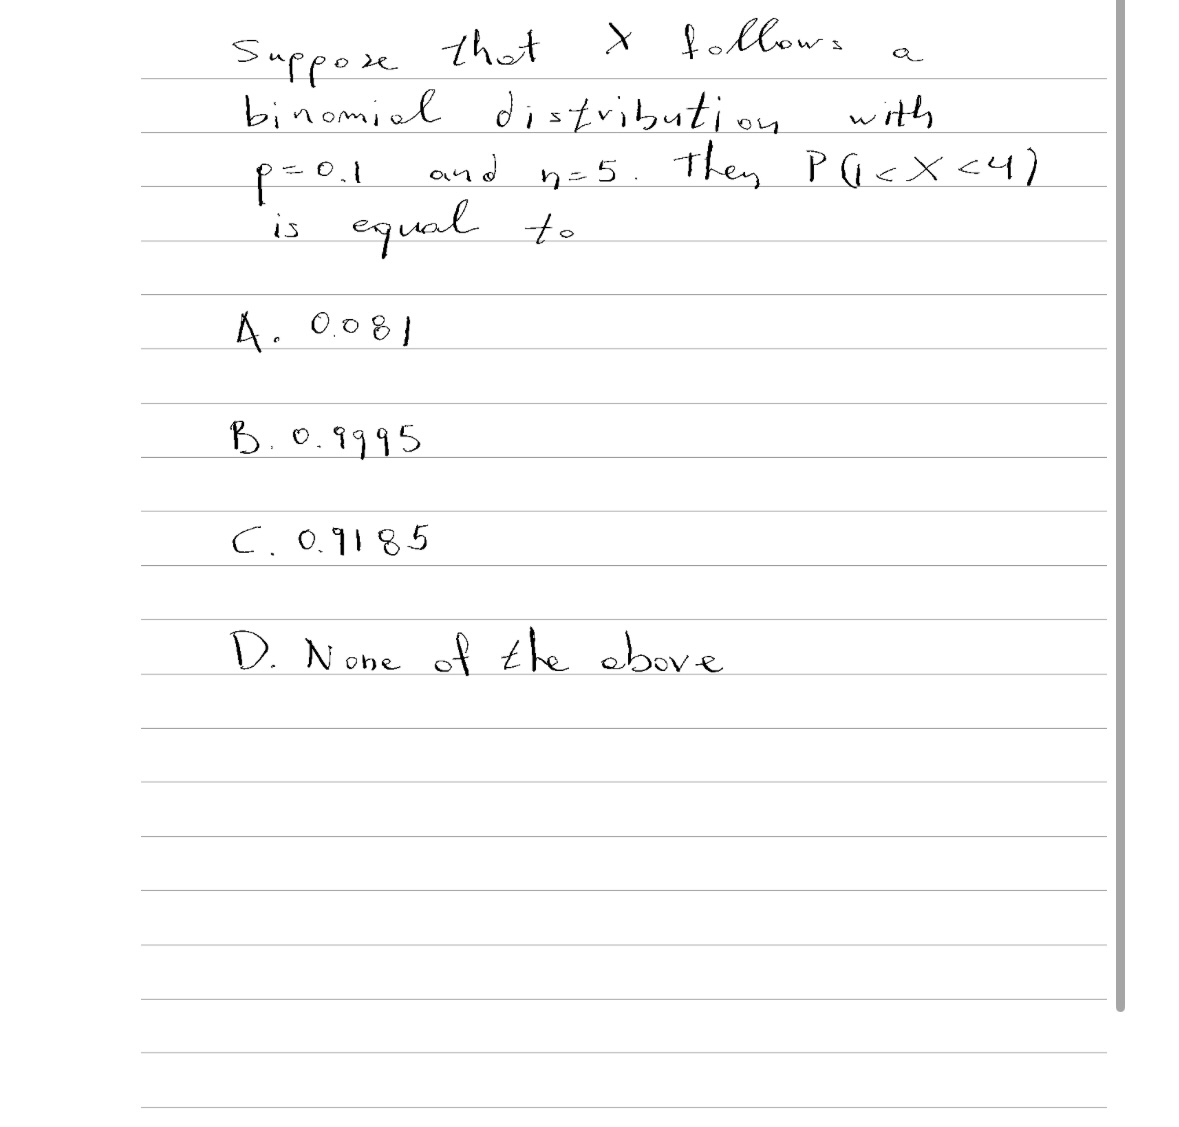 Suppose that X follows a
binomial distribution with
p=0.1 and n=5. Then P(1<X<4)
is equal to
A. 0.081
B. 0.9995
C. 0.9185
D. None of the above